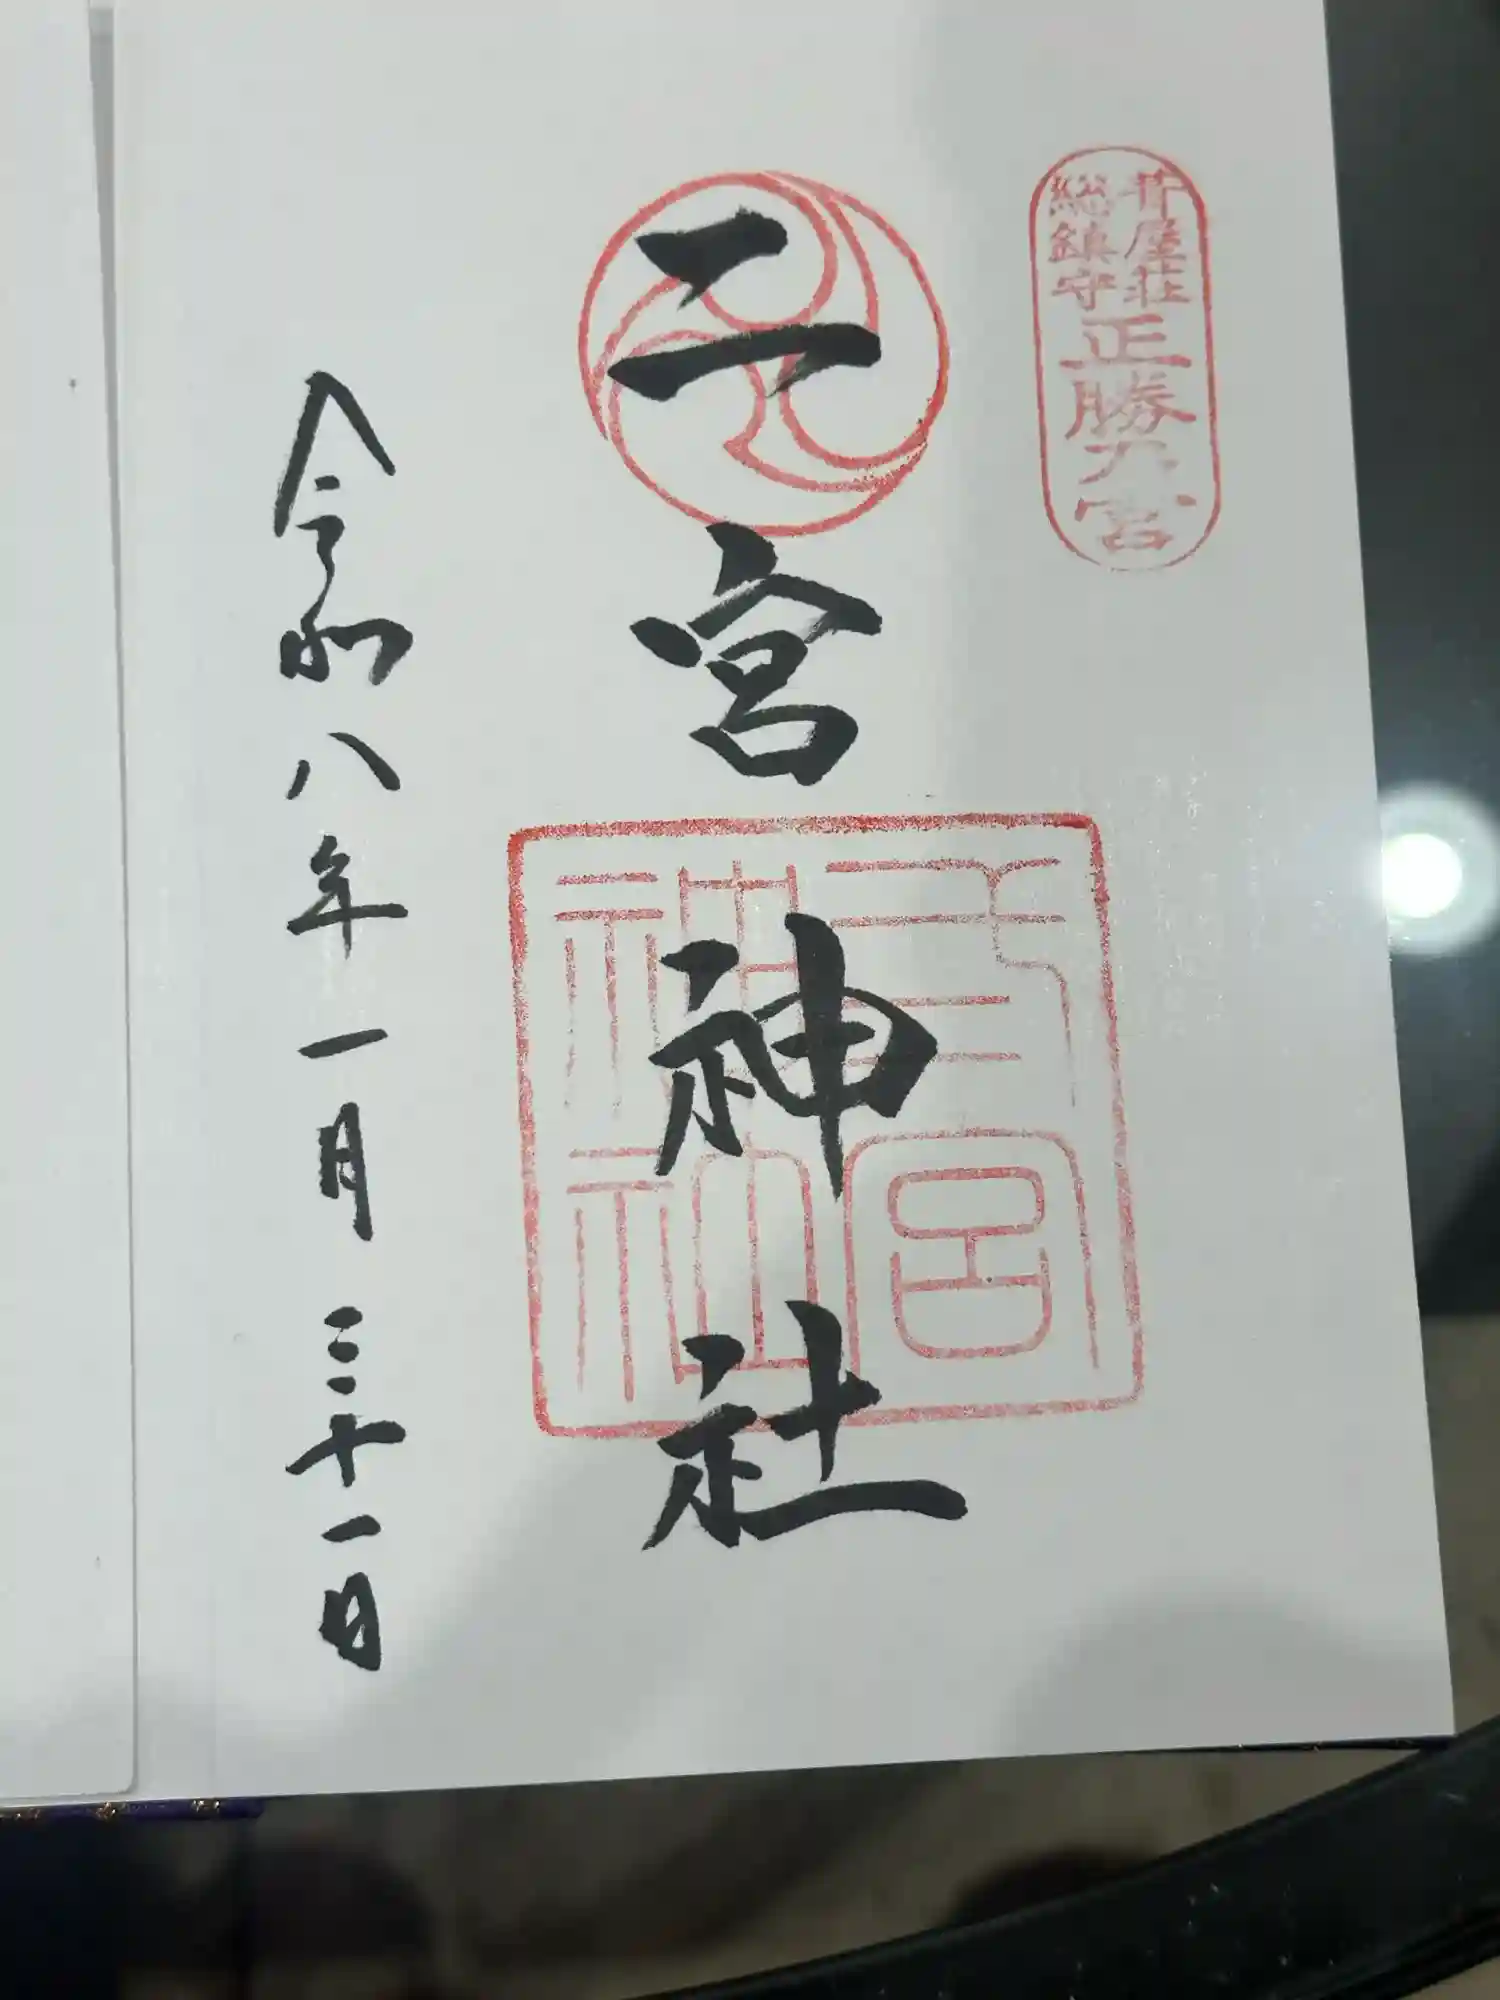 葺屋荘
総鎮守
正勝大宮
二宮神社
弍宮
神社
令和八年一月三十一日